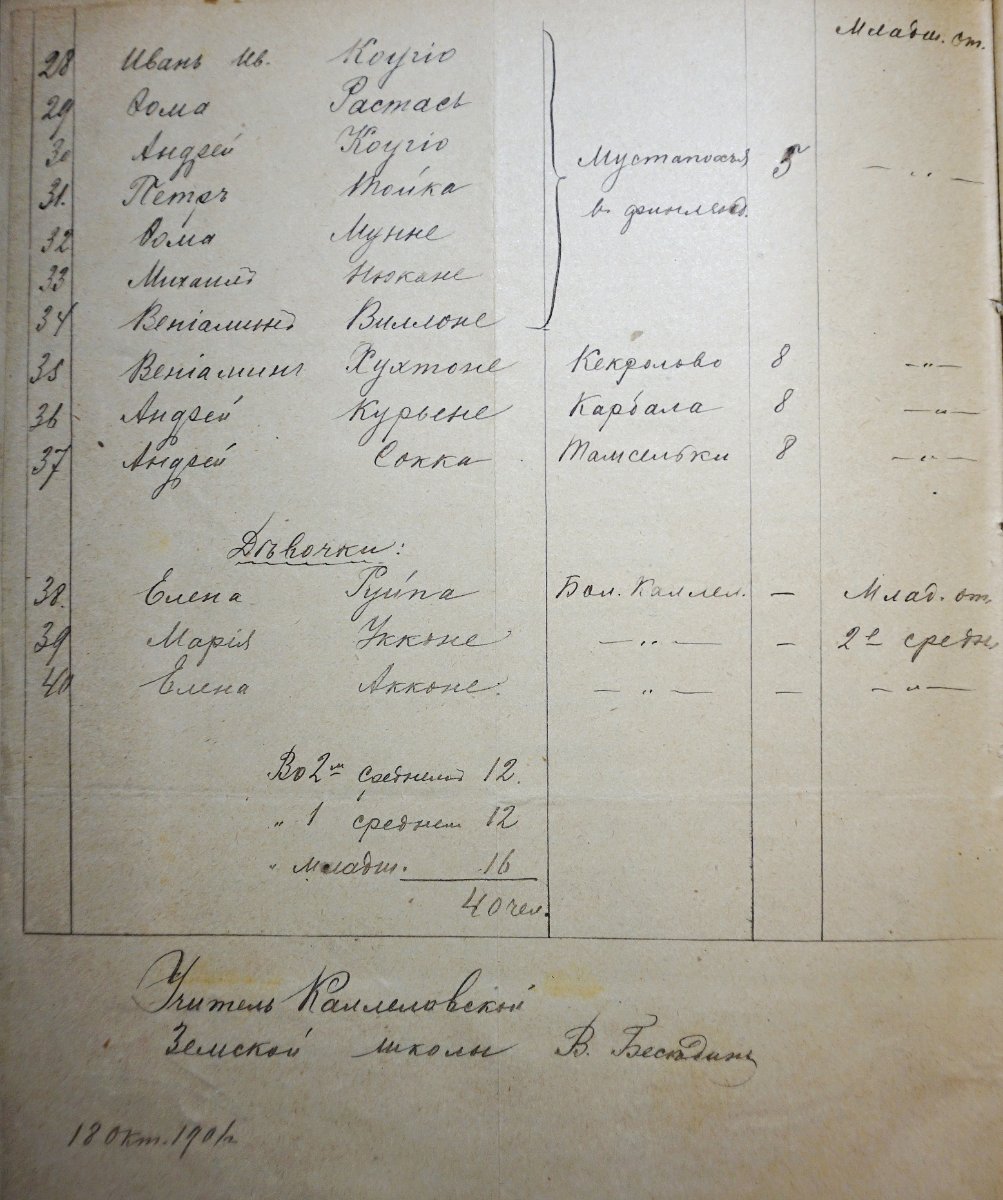 Младш. от.
28 Иванъ Ив. Коугіо
29 Ѳома Растась
30 Андрей Коугіо
31. Петръ Тойка
Мустапохья 5 — „ —
32 Ѳома Мунне
в финлянд.
33 Михаилъ Нюкане
34 Веніаминъ Виллоне
35 Веніаминъ Хухтоне Кекролово 8 — „ —
36 Андрей Курьене Карбала 8 — „ —
37 Андрей Сокка Тамсельки 8 — „ —
Дѣвочки:
38. Елена Руйпа Бол. Каллел. — Млад. от.
39 Марія Укконе — „ — — 2е средн
40 Елена Акконе. — „ — — — „ —
Во 2м среднемъ 12.
„ 1 среднем 12
„ младш. 16
40 чел.
Учитель Каллеловской
Земской школы В. Бесѣдинъ
18 Окт. 1901г